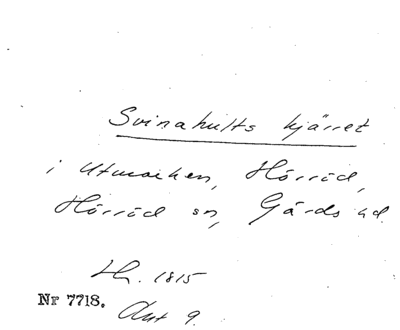 Svinahults kjärret
i Utmarken, Hörröd,
Hörröd sn, Gärds hd.
Lh. 1815
Nr 7718.
Akt 9.